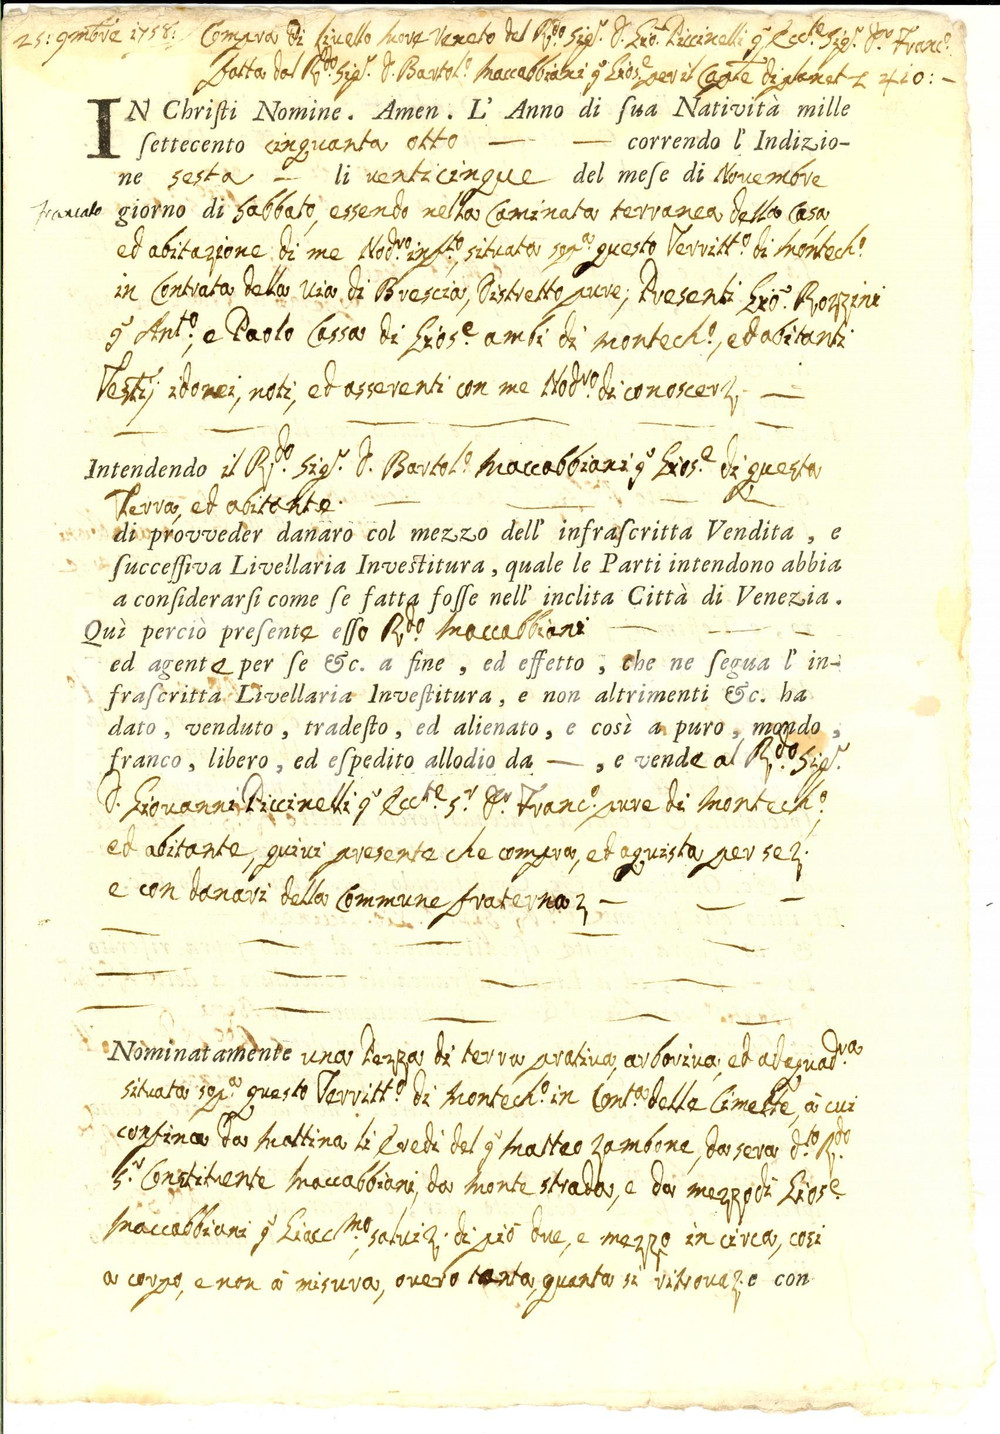 25: 9mbre 1758: Compra di Livello More Veneto del Rdo Sigr. D. Gio: Piccinelli qr Eccte Sigr. Dr Franc.o
fatta dal Rdo Sigr. D. Bartol.o Maccabbiani qr Giose per il Cap.le di planet L 410: –
IN Christi Nomine. Amen. L' Anno di sua Natività mille
settecento cinquanta otto — — correndo l' Indizio-
ne sesta — li venticinque del mese di Novembre
Francato
giorno di Sabbato, essendo nella Caminata terranea della Casa
ed abitazione di me Nodro infto, situata sopa questo Territto di Montech.o
in Contrata della Via di Brescia, Distretto pure; Presenti Gio: Rozzini
qr Ant.o, e Paolo Cassa di Giose ambi di Montech.o, ed abitanti
Testij idonei, noti, ed asserenti con me Nodro di conoscerz. —
Intendendo il Rdo Sigr. D. Bartol.o Maccabbiani qr Giose di questa
Terra, ed abitante.
di provveder danaro col mezzo dell' infrascritta Vendita, e
successiva Livellaria Investitura, quale le Parti intendono abbia
a considerarsi come se fatta fosse nell' inclita Città di Venezia.
Quì perciò presente esso Rdo Maccabbiani —
ed agente per se &c. a fine, ed effetto, che ne segua l' in-
frascritta Livellaria Investitura, e non altrimenti &c. ha
dato, venduto, tradesto, ed alienato, e così a puro, mondo,
franco, libero, ed espedito allodio da —, e vende al Rdo Sigr.
D. Giovanni Piccinelli qr Eccte Sr Dr Franc.o pure di Montech.o
ed abitante, quivi presente che compra, ed aquista per sez.
e con danari della Commune fraternaz —
Nominatamente una Pezza di terra prativa, arboriva, ed adaquadra
situata sopa questo Territto di Montech.o in Conta delle Cimette, à cui
confina da Mattina li Eredi del qr Matteo Zambone, da sera dto Rdo
Sr Constituente Maccabbiani, da Monte strada, e da mezzodì Giose
Maccabbiani qr Giacmo, salviz. di piò due, e mezzo in circa, così
a corpo, e non à misura, overo tanta, quanta si ritrovaz e con